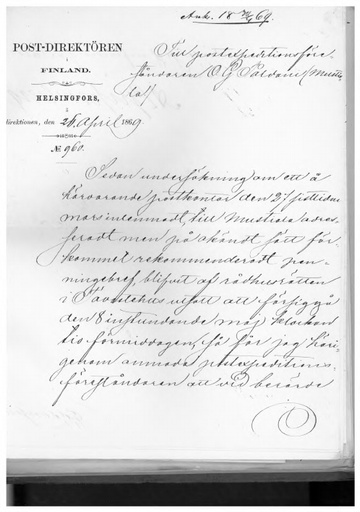 Ank. 18 30/4 69.
POST-DIREKTÖREN
i
FINLAND.
HELSINGFORS,
direktionen, den 26 April 1869
№ 960.
Till postexpeditionsföre-
ståndaren
Sedan undersökning om ett å
härvarande postkontor den 27 sistlidne
mars inlemnadt, till Mustiala adres-
seradt men på okändt sätt för-
kommet rekommenderadt pen-
ningebref, blifvit af rådhusrätten
i Tavastehus utsatt att försiggå
den 8 instundande maj klockan
tio förmiddagen, så får jag häri-
genom anmoda postexpeditions-
föreståndaren att vid berörde